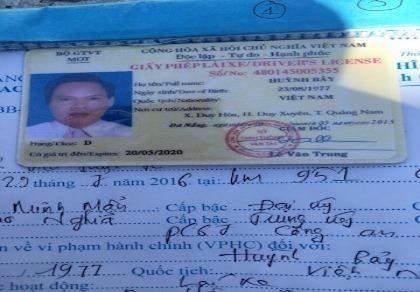 ① ③
BỘ GTVT
MOT
CỘNG HÒA XÃ HỘI CHỦ NGHĨA VIỆT NAM
Độc lập - Tự do - Hạnh phúc
GIẤY PHÉP LÁI XE/DRIVER'S LICENSE
Số/No: 480145005355
Họ tên/Full name: HUỲNH BẢY
Ngày sinh/Date of Birth: 23/08/1977
Quốc tịch/Nationality: VIỆT NAM
Nơi cư trú/Address:
X. Duy Hòa, H. Duy Xuyên, T. Quảng Nam
Đà Nẵng, 05 năm 2015
GIÁM ĐỐC
Hạng/Class: D
Có giá trị đến/Expires: 20/05/2020
Lê Văn Trung
29 tháng 7 năm 2016 tại: km 951
Minh Mẫn Cấp bậc Đại uý
Nghĩa Cấp bậc Trung uý
Công an
n về vi phạm hành chính (VPHC) đối với:
Huỳnh Bảy
1977 Quốc tịch: Việt
hoạt động: Lái xe